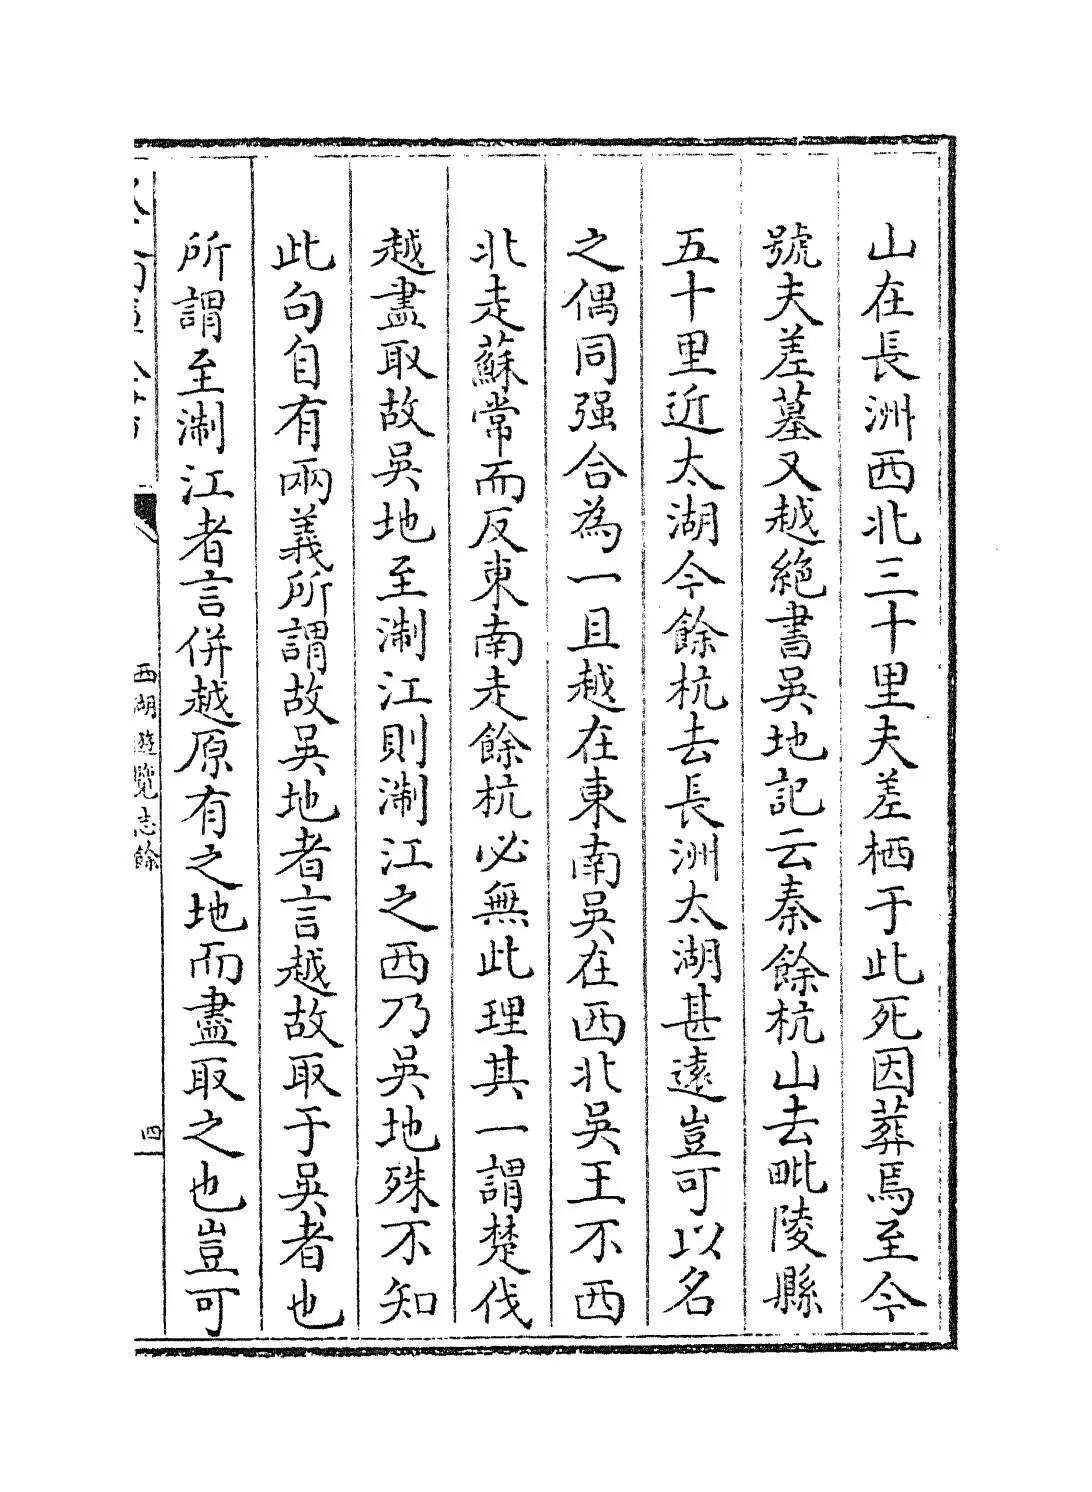 山在長洲西北三十里夫差栖于此死因葬焉至今
號夫差墓又越絶書吳地記云秦餘杭山去毗陵縣
五十里近太湖今餘杭去長洲太湖甚遠豈可以名
之偶同强合為一且越在東南吳在西北吳王不西
北走蘇常而反東南走餘杭必無此理其一謂楚伐
越盡取故吳地至淛江則淛江之西乃吳地殊不知
此句自有兩義所謂故吳地者言越故取于吳者也
所謂至淛江者言併越原有之地而盡取之也豈可
西湖遊覽志餘
四